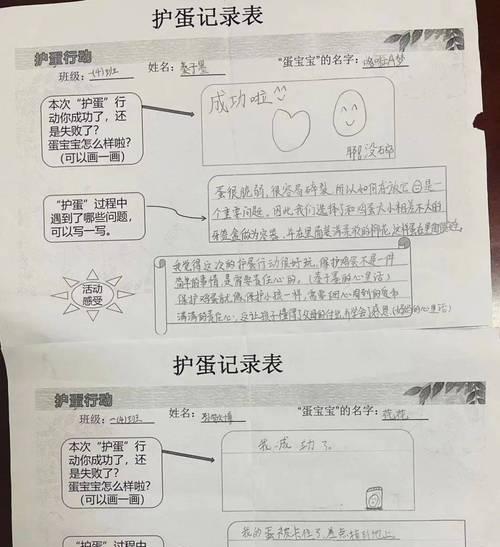 护蛋记录表
护蛋行动
班级：一(4)班 姓名： “蛋宝宝”的名字：哆啦A梦
本次“护蛋”行
动你成功了，还
是失败了？
蛋宝宝怎么样啦？
（可以画一画）
成功啦
没碎
“护蛋”过程中
遇到了哪些问题，
可以写一写。
蛋很脆弱，很容易碎裂，所以如何存放它是一
个重要问题。因此我们选择了和鸡蛋大小相差不大的
做为容器，并在里面装满柔软的棉花，这样蛋在里面
活动
感受
我觉得这次的护蛋行动很好玩，保护鸡蛋不是一件
简单的事情，是需要责任心的。
保护鸡蛋就像保护小孩一样，需要细心周到的
满满的责任心，这让孩子懂得了父母的付出，学会了感恩
护蛋记录表
护蛋行动
班级：一(4)班 姓名： “蛋宝宝”的名字：花花
本次“护蛋”行
动你成功了，还
是失败了？
蛋宝宝怎么样啦？
（可以画一画）
我成功了。
“护蛋”过程中
我的蛋被卡住了，差点掉到地上。